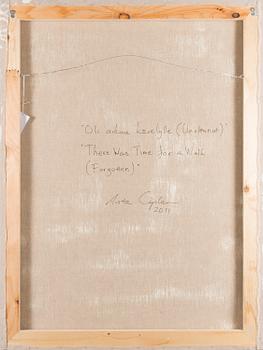 "Oli aikaa kävelylle (Unohtunut)"
"There Was Time for a Walk
(Forgotten)"
2011